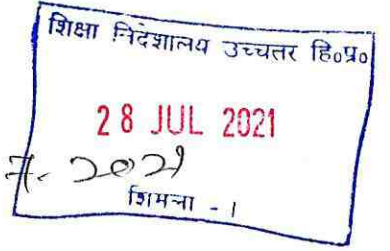 शिक्षा निदेशालय उच्चतर हि०प्र०
28 JUL 2021
न. 2021
शिमला - 1